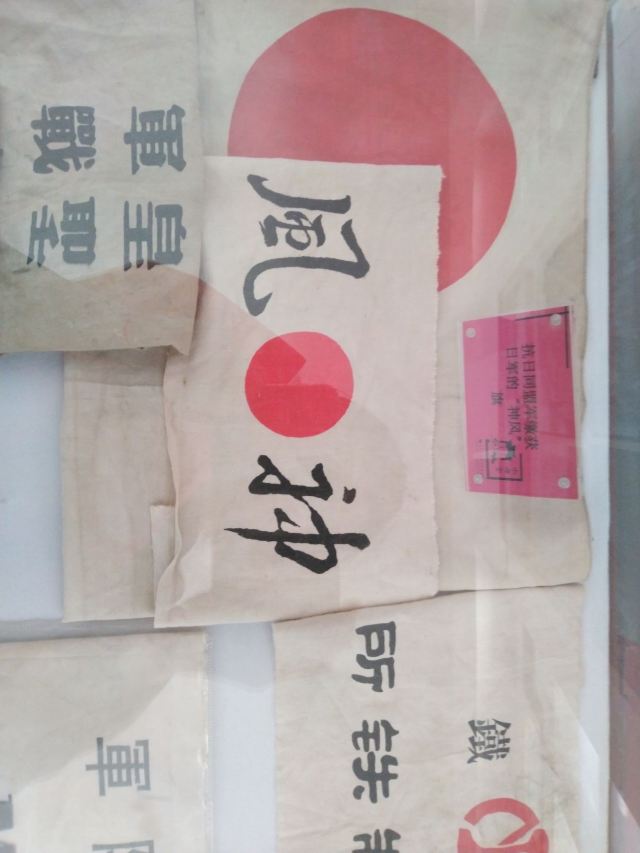 皇軍
聖戰
神風
抗日同盟军缴获
日军的“神风”
旗
鐵
鉄所
軍